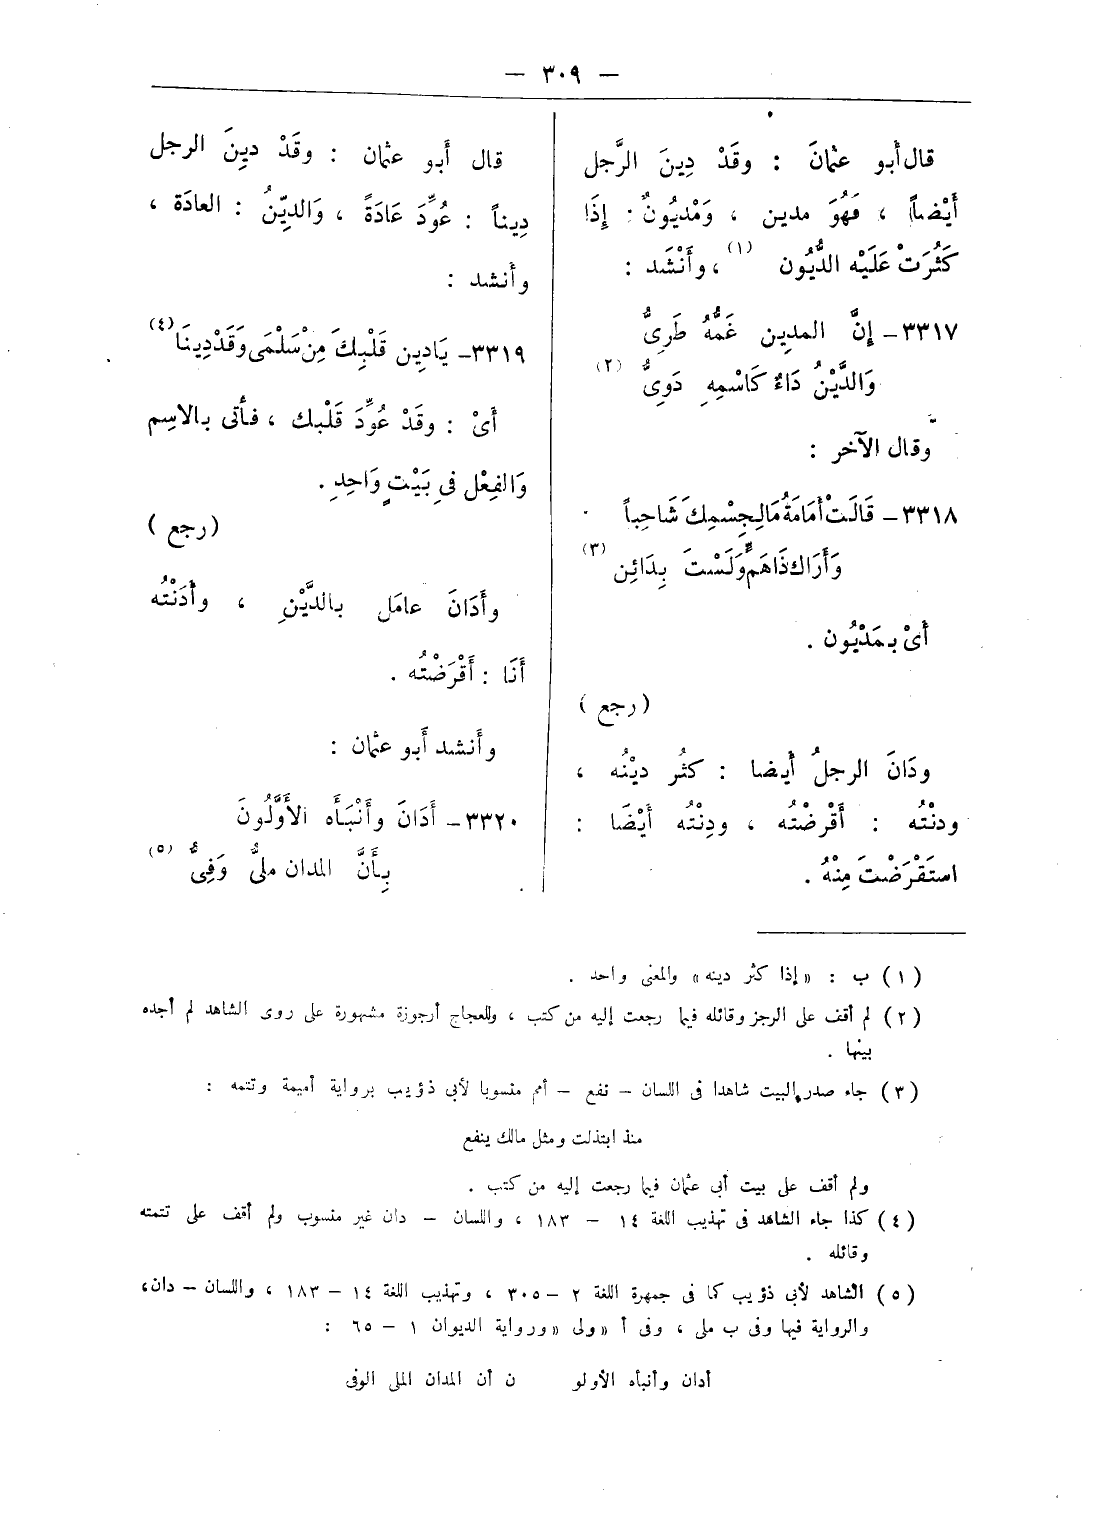 — ٣٠٩ —
قال أبو عثمانَ : وقَدْ دِينَ الرَّجل
أَيْضاً ، فَهُوَ مدين ، وَمْديُونٌ : إذَا
كَثُرَتْ عَلَيْه الدُّيُون (١) ، وأَنْشَد :
٣٣١٧ – إنَّ المدين غَمُّهُ طَرِىُّ
وَالدَّيْنُ دَاءٌ كَاسْمِهِ دَوِىُّ (٢)
وقال الآخر :
٣٣١٨ – قَالَتْ أُمَامَةُ مَا لِجِسْمِكَ شَاحِباً
وَأَرَاكَ ذَا هَمٍّ وَلَسْتَ بِدَائِن (٣)
أَىْ بِمَدْيُون .
( رجع )
ودَانَ الرجلُ أيضا : كثُر ديْنُه ،
ودنْتُه : أَقْرضْتُه ، ودِنْتُه أَيْضَا :
استَقْرَضْتَ مِنْهُ .
قال أَبو عثمان : وقَدْ دينَ الرجل
دِيناً : عُوِّدَ عَادَةً ، وَالدِيّنُ : العادَة ،
وأنشد :
٣٣١٩ – يَادِين قَلْبِكَ مِنْ سَلْمَى وَقَدْ دِينَا (٤)
أَىْ : وقَدْ عُوِّدَ قَلْبك ، فأتى بالاسِم
وَالفِعْل فى بَيْتٍ وَاحِدِ .
( رجع )
وأَدَانَ عامَل بالدَّيْنِ ، وأَدَنْتُه
أنَا : أَقْرَضْتُه .
وأنشد أَبو عثمان :
٣٣٢٠ – أَدَانَ وأَنْبَأَه الأَوَّلُونَ
بِأَنَّ المدان ملىُّ وَفِىُّ (٥)
(١) ب : «إذا كثر دينه» والمعنى واحد .
(٢) لم أقف على الرجز وقائله فيما رجعت إليه من كتب ، وللعجاج أرجوزة مشهورة على روى الشاهد لم أجده
بينها .
(٣) جاء صدر البيت شاهدا فى اللسان – نفع – أمم منسوبا لأبى ذؤيب برواية أميمة وتتمه :
منذ ابتذلت ومثل مالك ينفع
ولم أقف على بيت أبى عثمان فيما رجعت إليه من كتب .
(٤) كذا جاء الشاهد فى تهذيب اللغة ١٤ – ١٨٣ ، واللسان – دان غير منسوب ولم أقف على تتمته
وقائله .
(٥) الشاهد لأبى ذؤيب كما فى جمهرة اللغة ٢ – ٣٠٥ ، وتهذيب اللغة ١٤ – ١٨٣ ، واللسان – دان،
والرواية فيها وفى ب ملى ، وفى أ «ولى» ورواية الديوان ١ – ٦٥ :
أدان وأنبأه الأولو ن أن المدان الملى الوفى